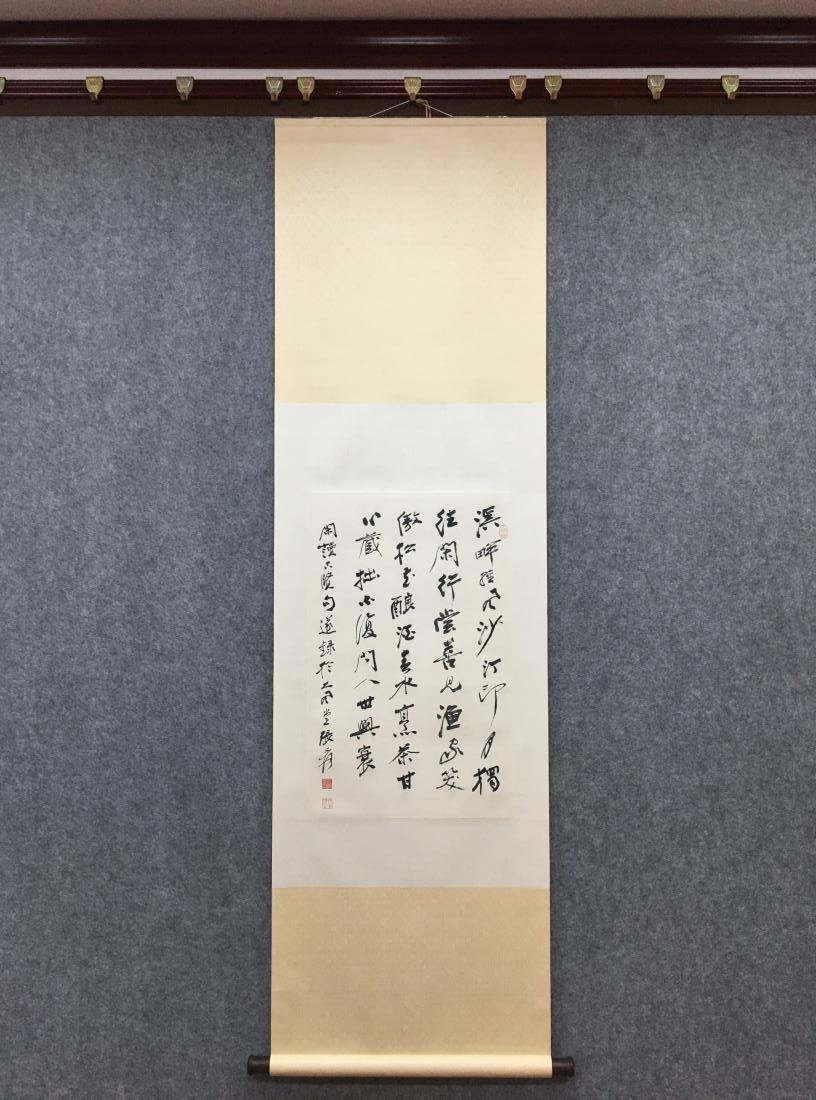 溪畔風沙汀印月獨
往閑行嘗喜見漁家笑
傲松花釀酒春水烹茶甘
心藏拙不復問人世興衰
閑讀賢句遂錄於大風堂張爰